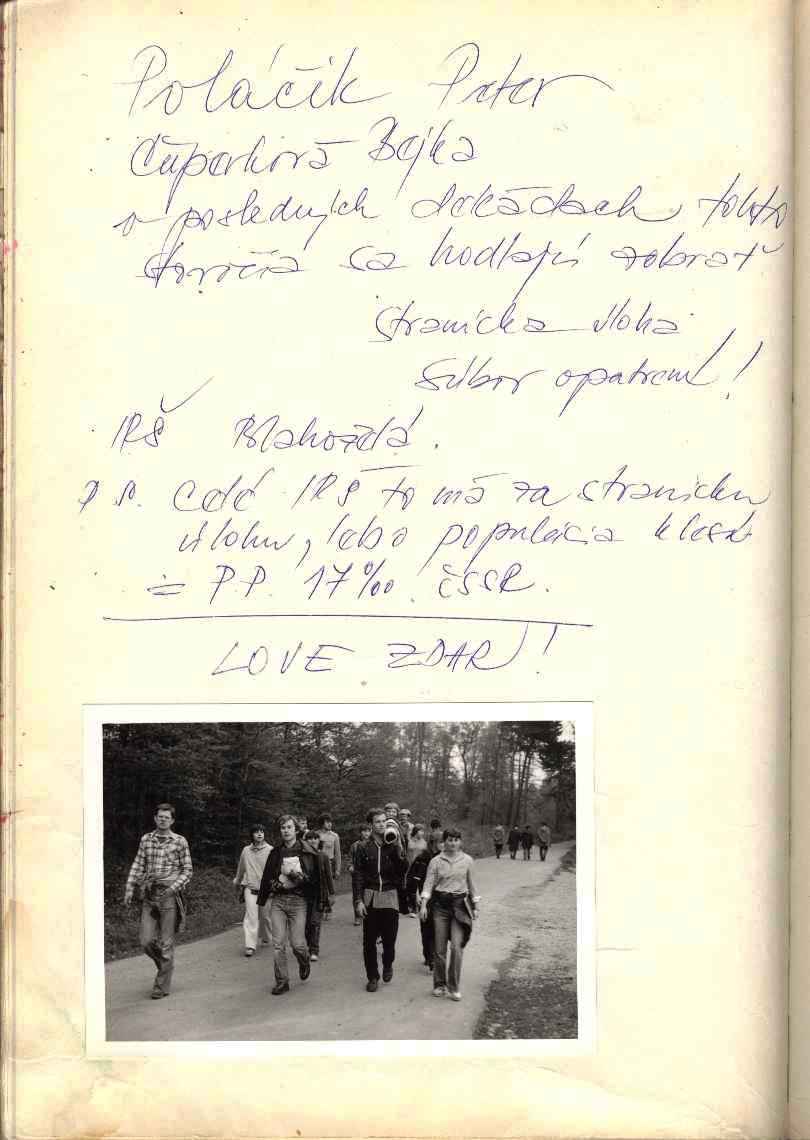 Poláčik Peter
Čúporková Bejka
v posledných dekádach tohto
storočia sa hodlajú zobrať
stranícka úloha
Súbor opatrení!
IRŠ Blahoželá.
P.S. celé IRŠ to má za stranícku
úlohu, lebo populácia klesá
= P.P. 17‰. ČSSR.
LOVE ZDAR!